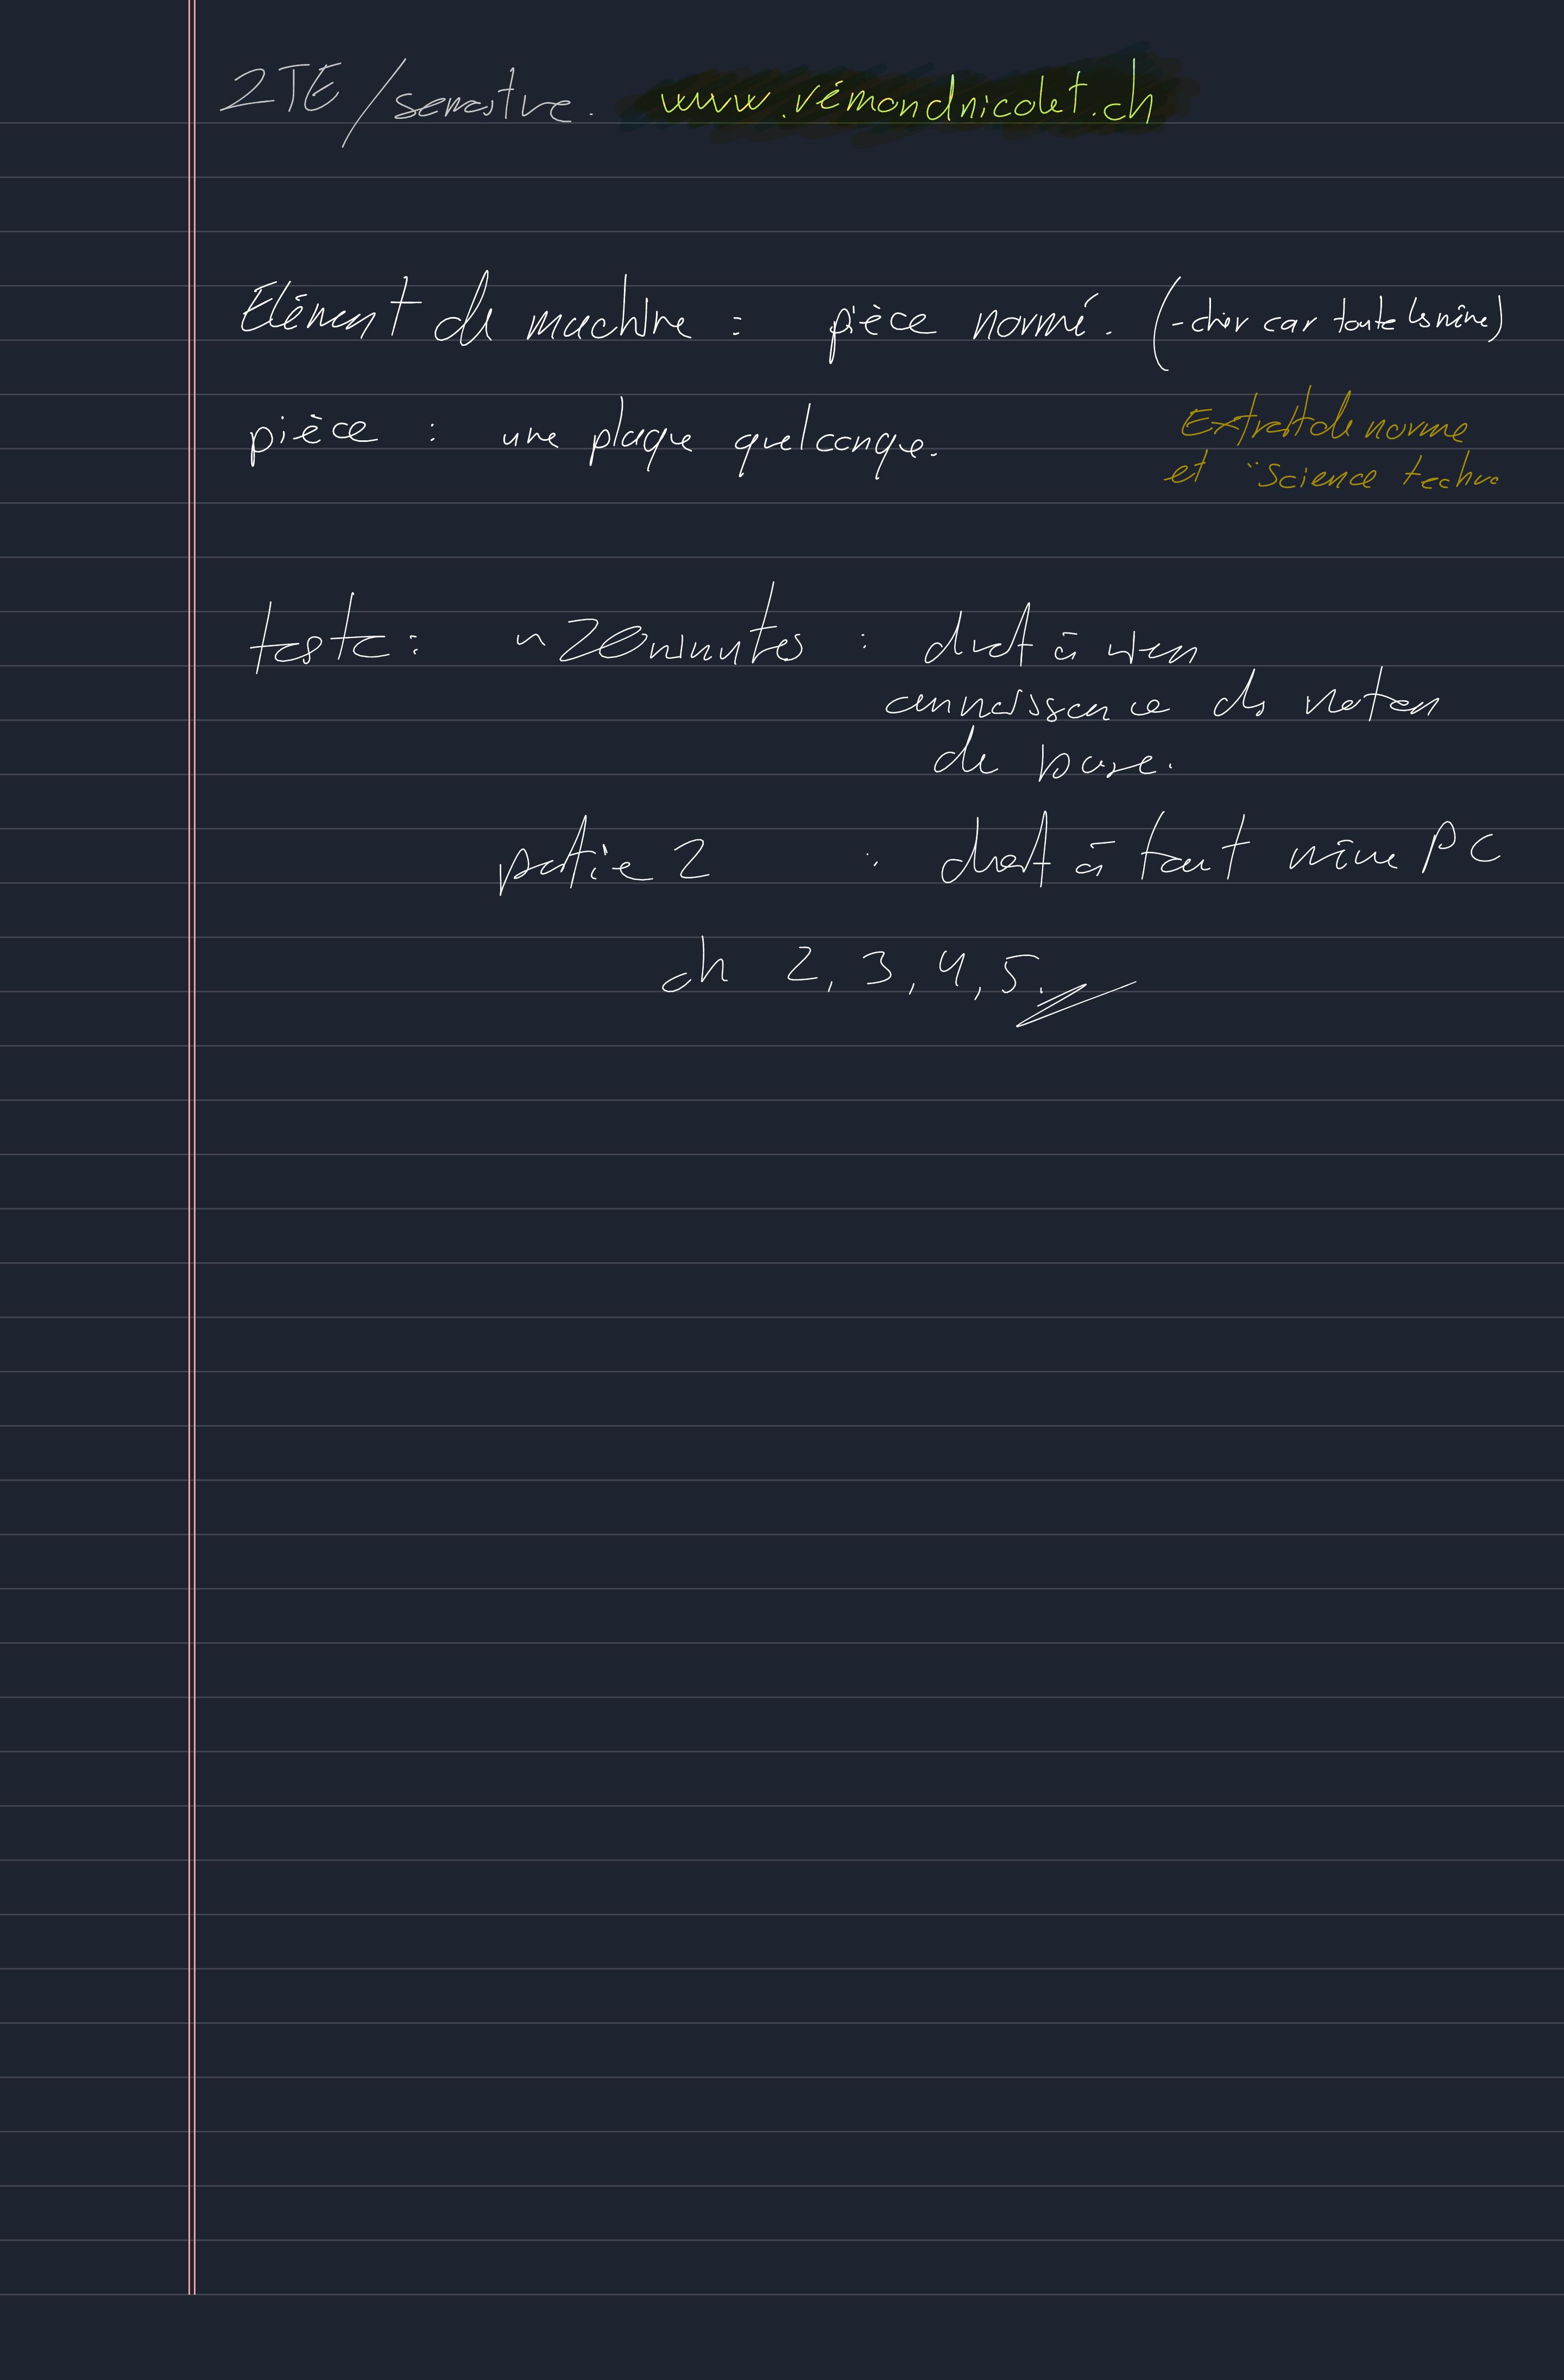 2TE / semestre. www.rémondnicolet.ch
Elément de machine : pièce normé. (- cher car toute les même)
pièce : une plaque quelconque.
Extrait de norme
et "Science techno
teste : ~ 20 minutes : droit à rien
connaissance ds notion
de base.
partie 2 : droit à tout même PC
ch 2, 3, 4, 5.